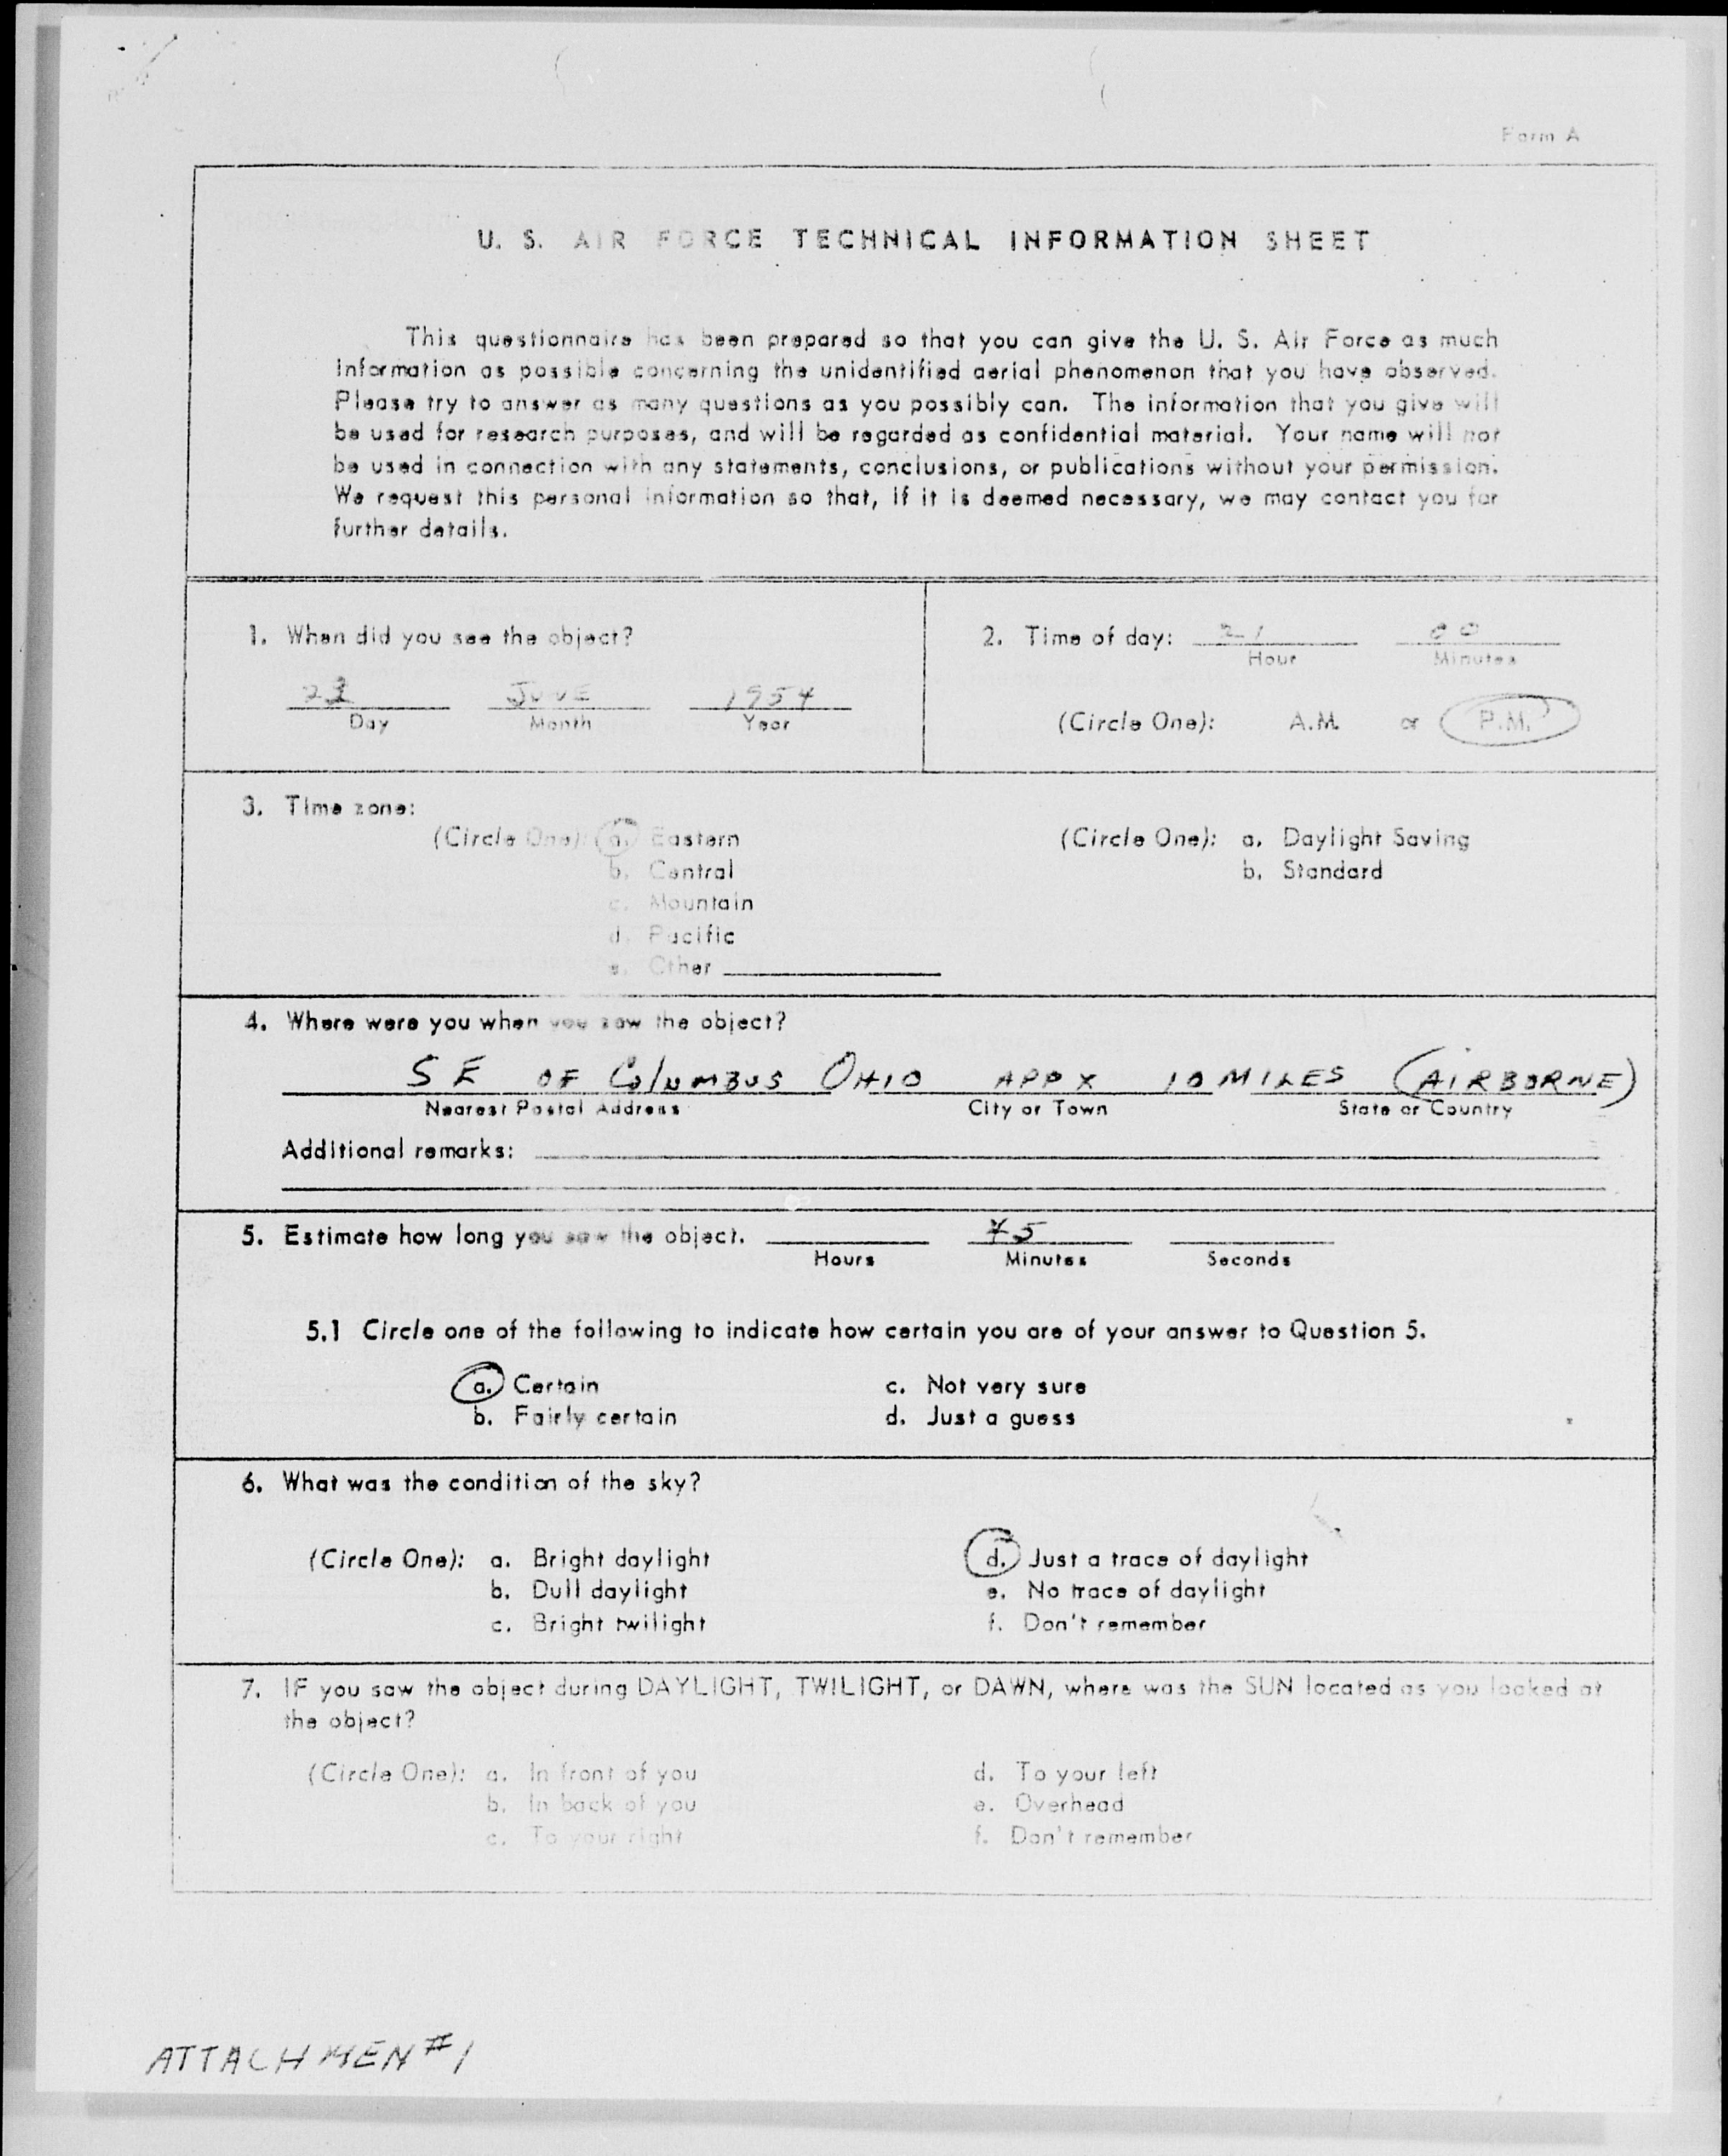 Form A
U. S. AIR FORCE TECHNICAL INFORMATION SHEET
This questionnaire has been prepared so that you can give the U. S. Air Force as much
information as possible concerning the unidentified aerial phenomenon that you have observed.
Please try to answer as many questions as you possibly can. The information that you give will
be used for research purposes, and will be regarded as confidential material. Your name will not
be used in connection with any statements, conclusions, or publications without your permission.
We request this personal information so that, if it is deemed necessary, we may contact you for
further details.
1. When did you see the object?
23 JUNE 1954
Day Month Year
2. Time of day: 21 00
Hour Minutes
(Circle One): A.M. or P.M.
3. Time zone:
(Circle One): a. Eastern
b. Central
c. Mountain
d. Pacific
e. Other
(Circle One): a. Daylight Saving
b. Standard
4. Where were you when you saw the object?
SE OF COlUMBUS OHIO APPX 10 MILES (AIRBORNE)
Nearest Postal Address City or Town State or Country
Additional remarks:
5. Estimate how long you saw the object. 45
Hours Minutes Seconds
5.1 Circle one of the following to indicate how certain you are of your answer to Question 5.
a. Certain c. Not very sure
b. Fairly certain d. Just a guess
6. What was the condition of the sky?
(Circle One): a. Bright daylight d. Just a trace of daylight
b. Dull daylight e. No trace of daylight
c. Bright twilight f. Don't remember
7. IF you saw the object during DAYLIGHT, TWILIGHT, or DAWN, where was the SUN located as you looked at
the object?
(Circle One): a. In front of you d. To your left
b. In back of you e. Overhead
c. To your right f. Don't remember
ATTACHMEN #1